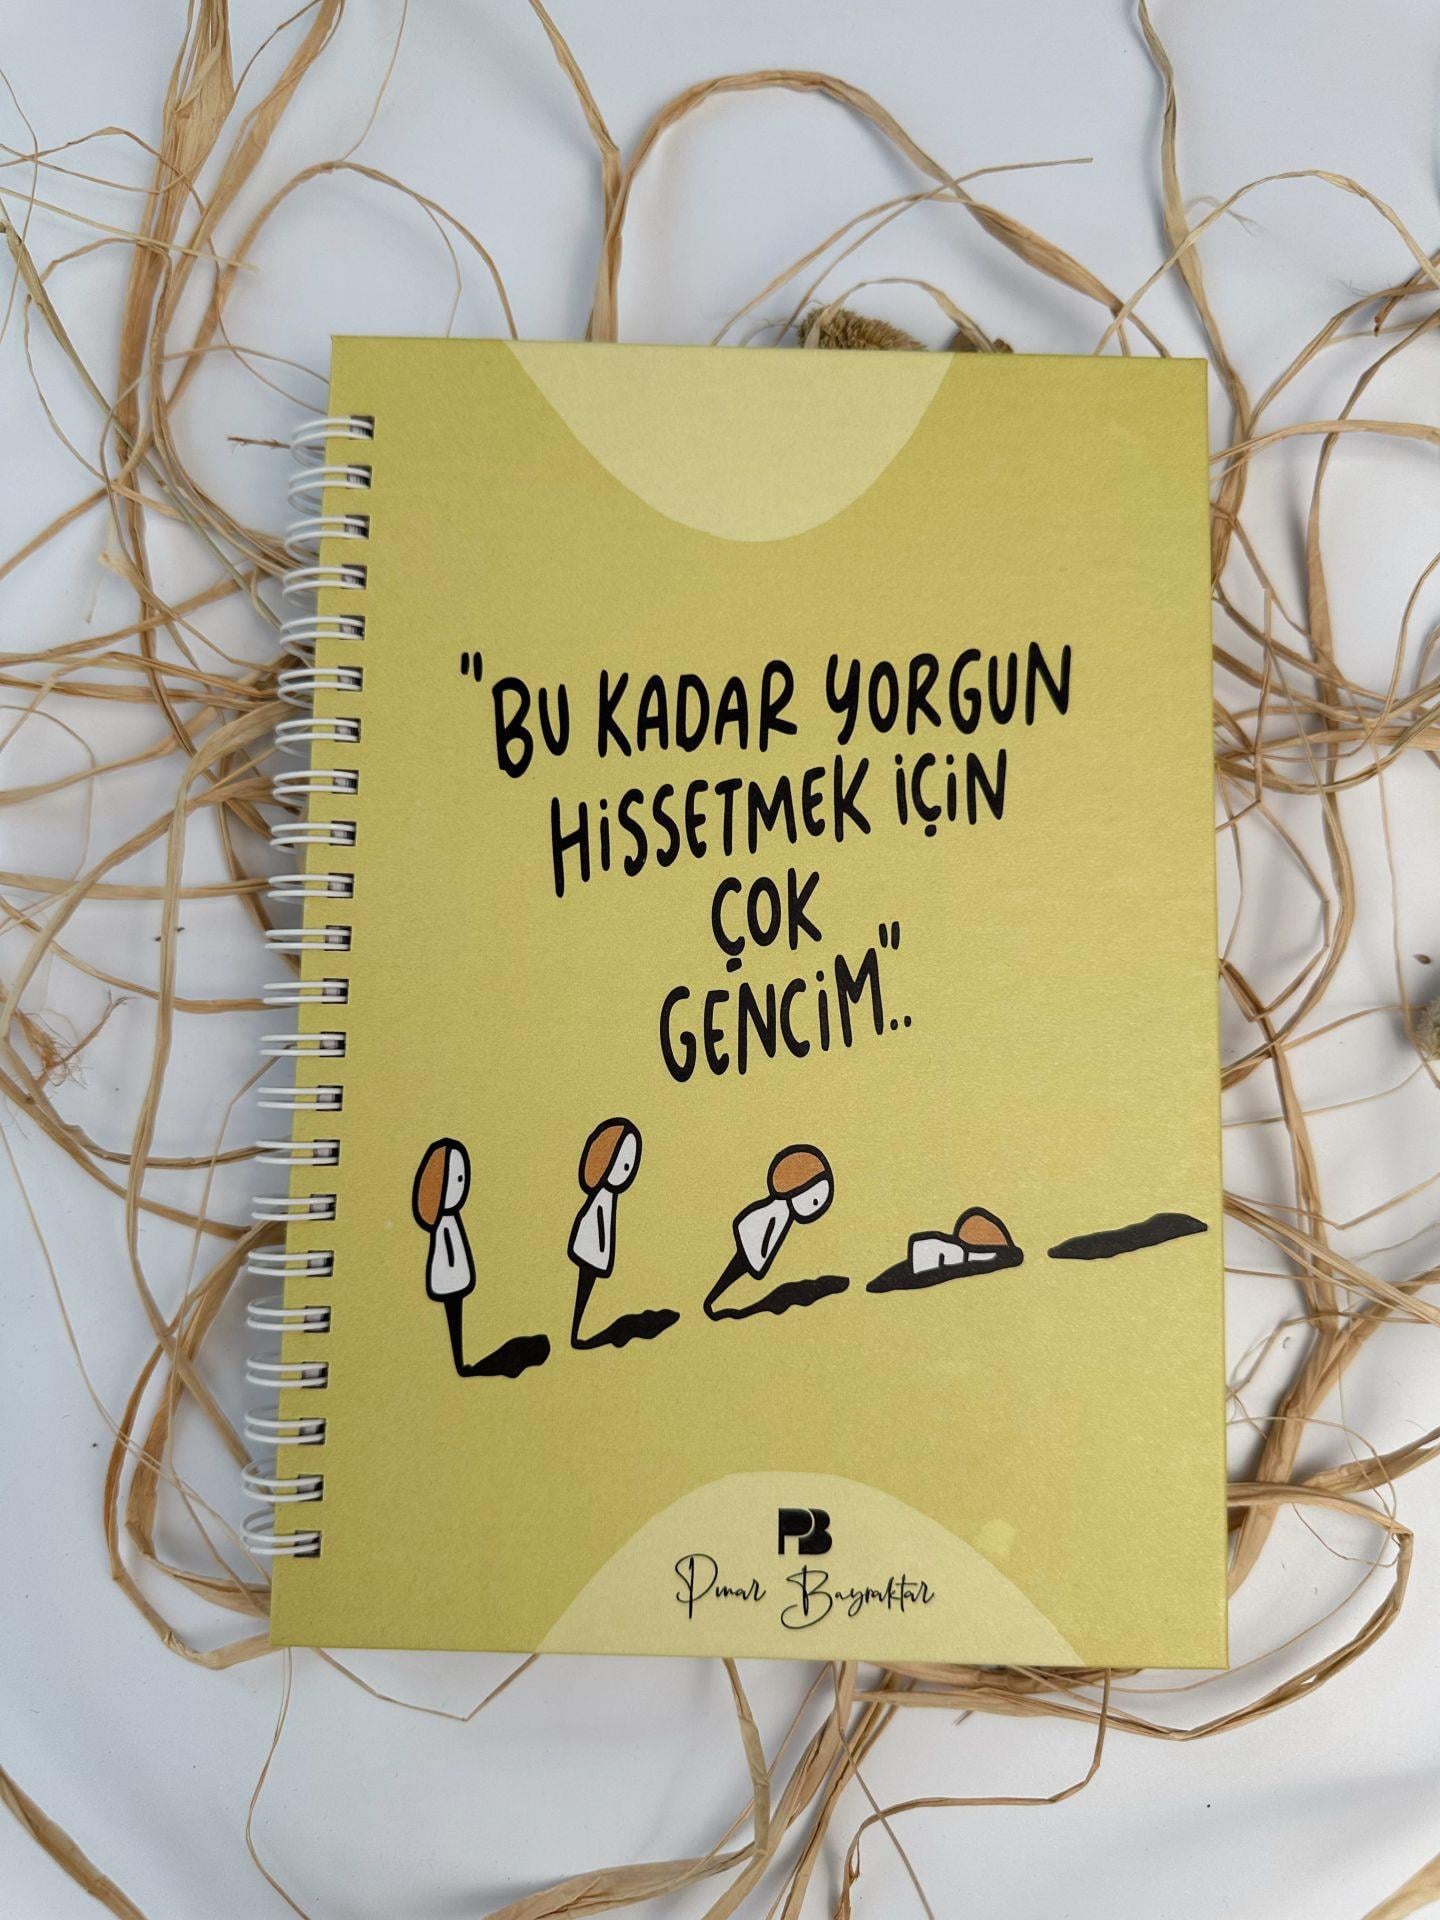 "BU KADAR YORGUN
HİSSETMEK İÇİN
ÇOK
GENCİM"..
PB
Pınar Bayraktar